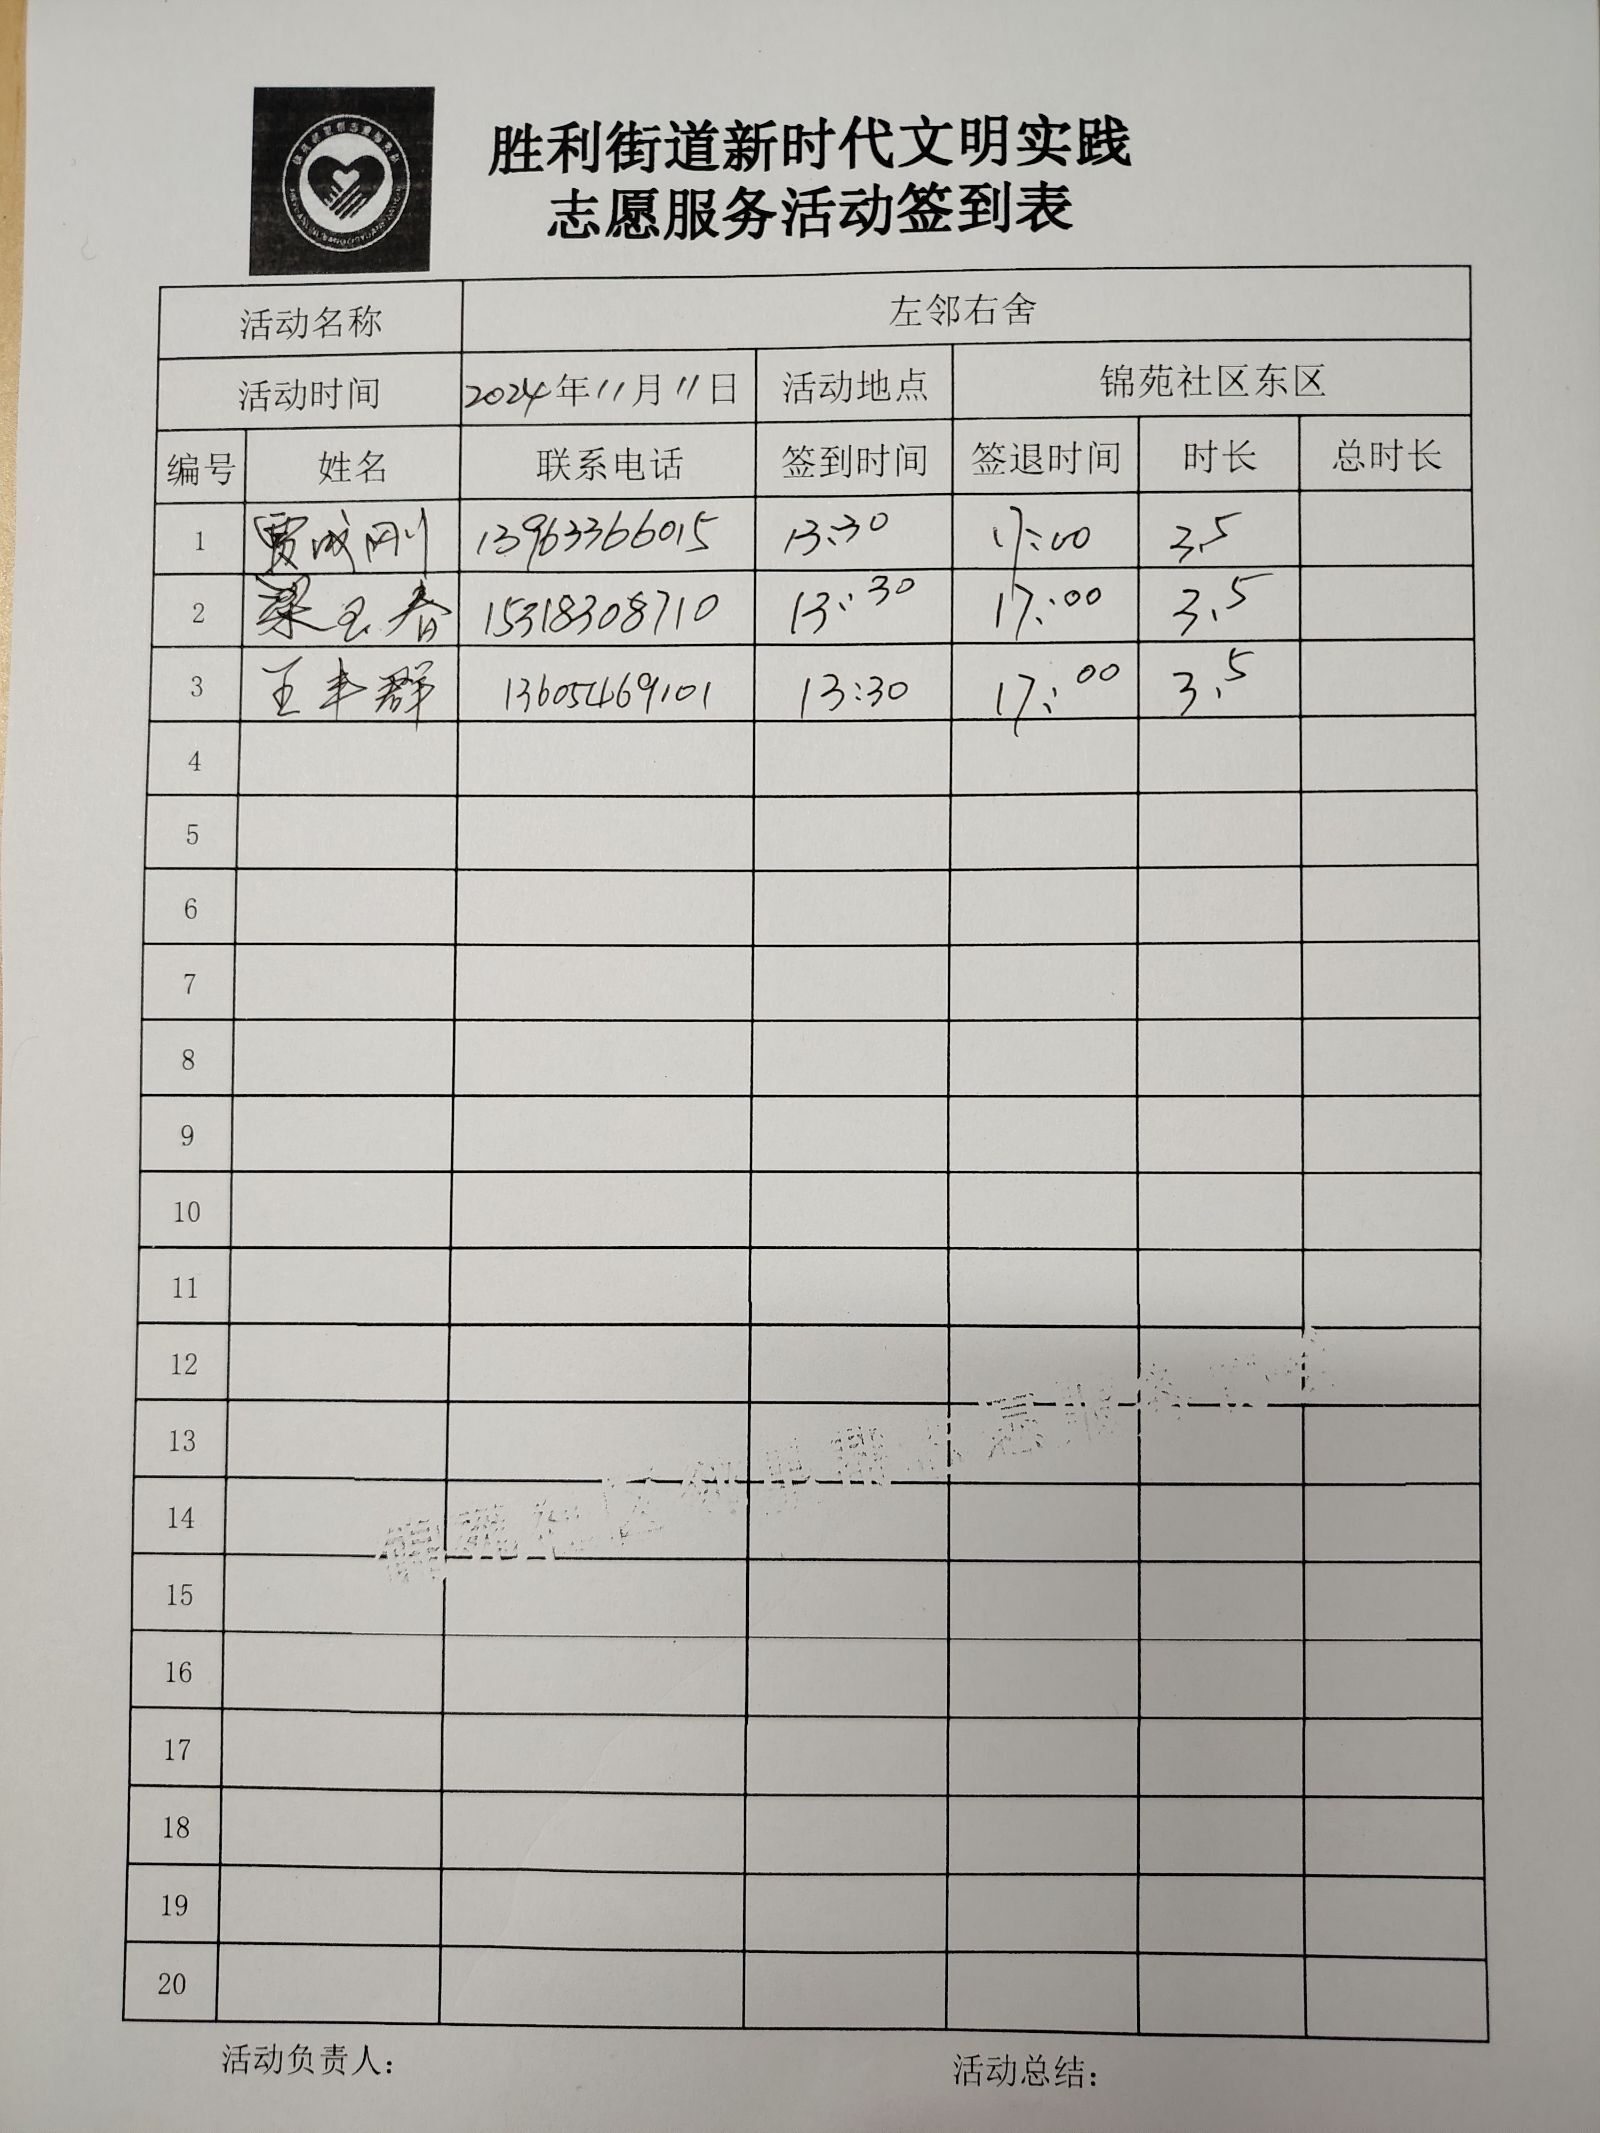 胜利街道新时代文明实践
志愿服务活动签到表
活动名称 左邻右舍
活动时间 2024年11月11日 活动地点 锦苑社区东区
编号 姓名 联系电话 签到时间 签退时间 时长 总时长
1 贾成刚 13963366015 13:30 17:00 3.5
2 梁玉春 15318308710 13:30 17:00 3.5
3 王丰群 13605469101 13:30 17:00 3.5
4
5
6
7
8
9
10
11
12
13
14
15
16
17
18
19
20
活动负责人: 活动总结: